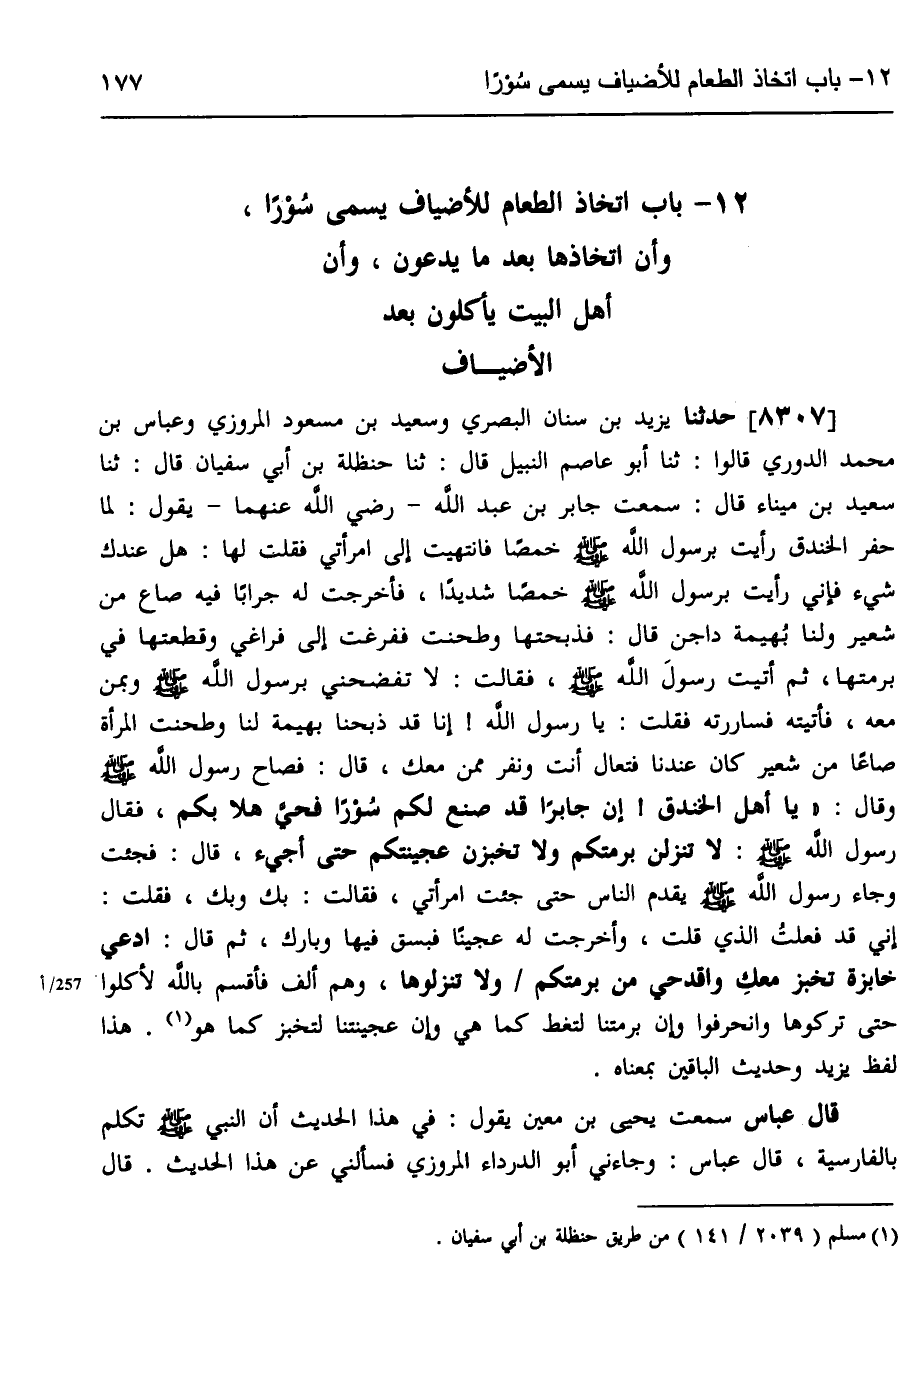 ١٢- باب اتخاذ الطعام للأضياف يسمى سُوْرًا ١٧٧
١٢- باب اتخاذ الطعام للأضياف يسمى سُوْرًا ،
وأن اتخاذها بعد ما يدعون ، وأن
أهل البيت يأكلون بعد
الأضيـــاف
[٨٣٠٧] حدثنا يزيد بن سنان البصري وسعيد بن مسعود المروزي وعباس بن
محمد الدوري قالوا : ثنا أبو عاصم النبيل قال : ثنا حنظلة بن أبي سفيان قال : ثنا
سعيد بن ميناء قال : سمعت جابر بن عبد اللَّه - رضي اللَّه عنهما - يقول : لما
حفر الخندق رأيت برسول اللَّه ﷺ خمصًا فانتهيت إلى امرأتي فقلت لها : هل عندك
شيء فإني رأيت برسول اللَّه ﷺ خمصًا شديدًا ، فأخرجت له جرابًا فيه صاع من
شعير ولنا بُهيمة داجن قال : فذبحتها وطحنت ففرغت إلى فراغي وقطعتها في
برمتها، ثم أتيت رسولَ اللَّه ﷺ ، فقالت : لا تفضحني برسول اللَّه ﷺ وبمن
معه ، فأتيته فساررته فقلت : يا رسول اللَّه ! إنا قد ذبحنا بهيمة لنا وطحنت المرأة
صاعًا من شعير كان عندنا فتعال أنت ونفر ممن معك ، قال : فصاح رسول اللَّه ﷺ
وقال : « يا أهل الخندق ! إن جابرًا قد صنع لكم سُوْرًا فحيَّ هلا بكم ، فقال
رسول اللَّه ﷺ : لا تنزلن برمتكم ولا تخبزن عجينتكم حتى أجيء ، قال : فجئت
وجاء رسول اللَّه ﷺ يقدم الناس حتى جئت امرأتي ، فقالت : بك وبك ، فقلت :
إني قد فعلتُ الذي قلت ، وأخرجت له عجينًا فبسق فيها وبارك ، ثم قال : ادعي
خابزة تخبز معكِ واقدحي من برمتكم / ولا تنزلوها ، وهم ألف فأقسم باللَّه لأكلوا 257/أ
حتى تركوها وانحرفوا وإن برمتنا لتغط كما هي وإن عجينتنا لتخبز كما هو(١) . هذا
لفظ يزيد وحديث الباقين بمعناه .
قال عباس سمعت يحيى بن معين يقول : في هذا الحديث أن النبي ﷺ تكلم
بالفارسية ، قال عباس : وجاءني أبو الدرداء المروزي فسألني عن هذا الحديث . قال
(١) مسلم ( ٢٠٣٩ / ١٤١ ) من طريق حنظلة بن أبي سفيان .